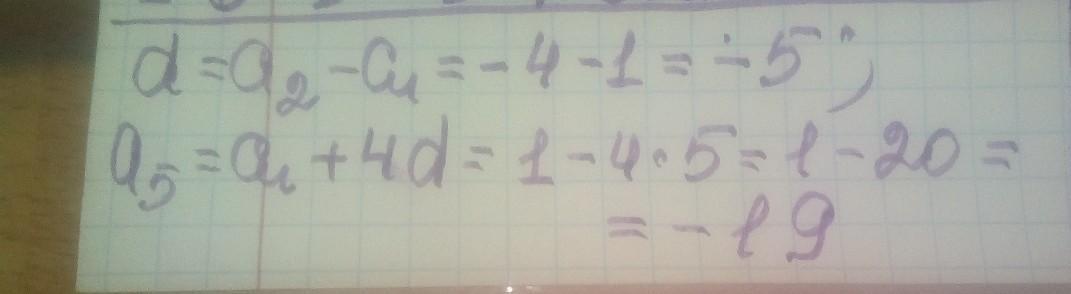 d = a₂ - a₁ = -4 - 1 = -5;
a₅ = a₁ + 4d = 1 - 4·5 = 1 - 20 =
= -19